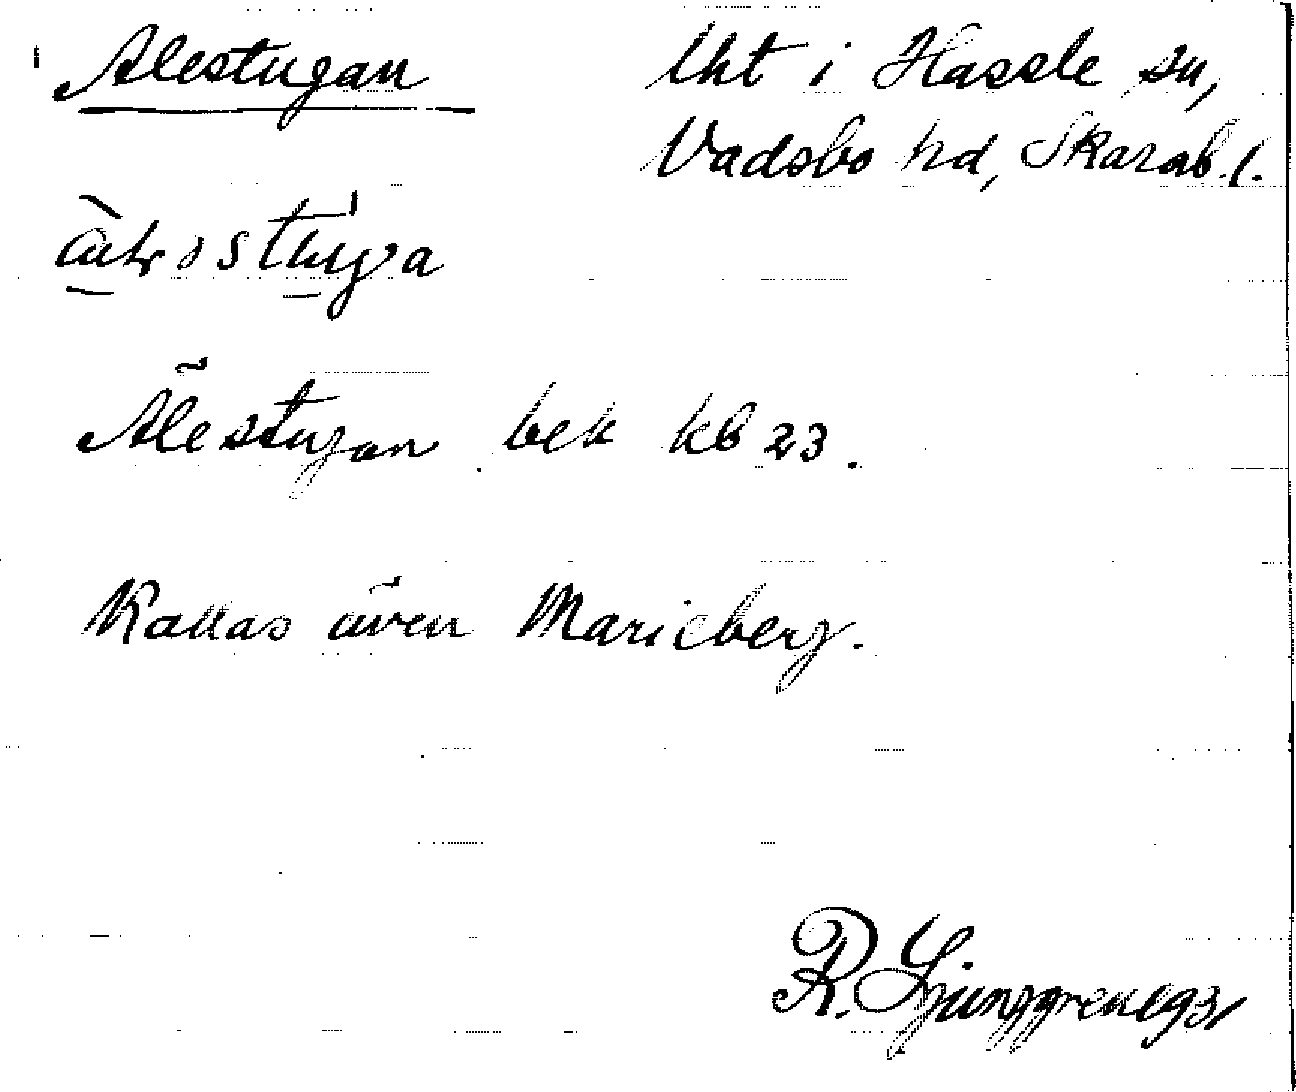 Alestugan
Lht i Hassle sn,
Vadsbo hd, Skarab. l.
Älestugan bek kb 23.
Kallas även Marieberg.
R. Ljunggren 1931